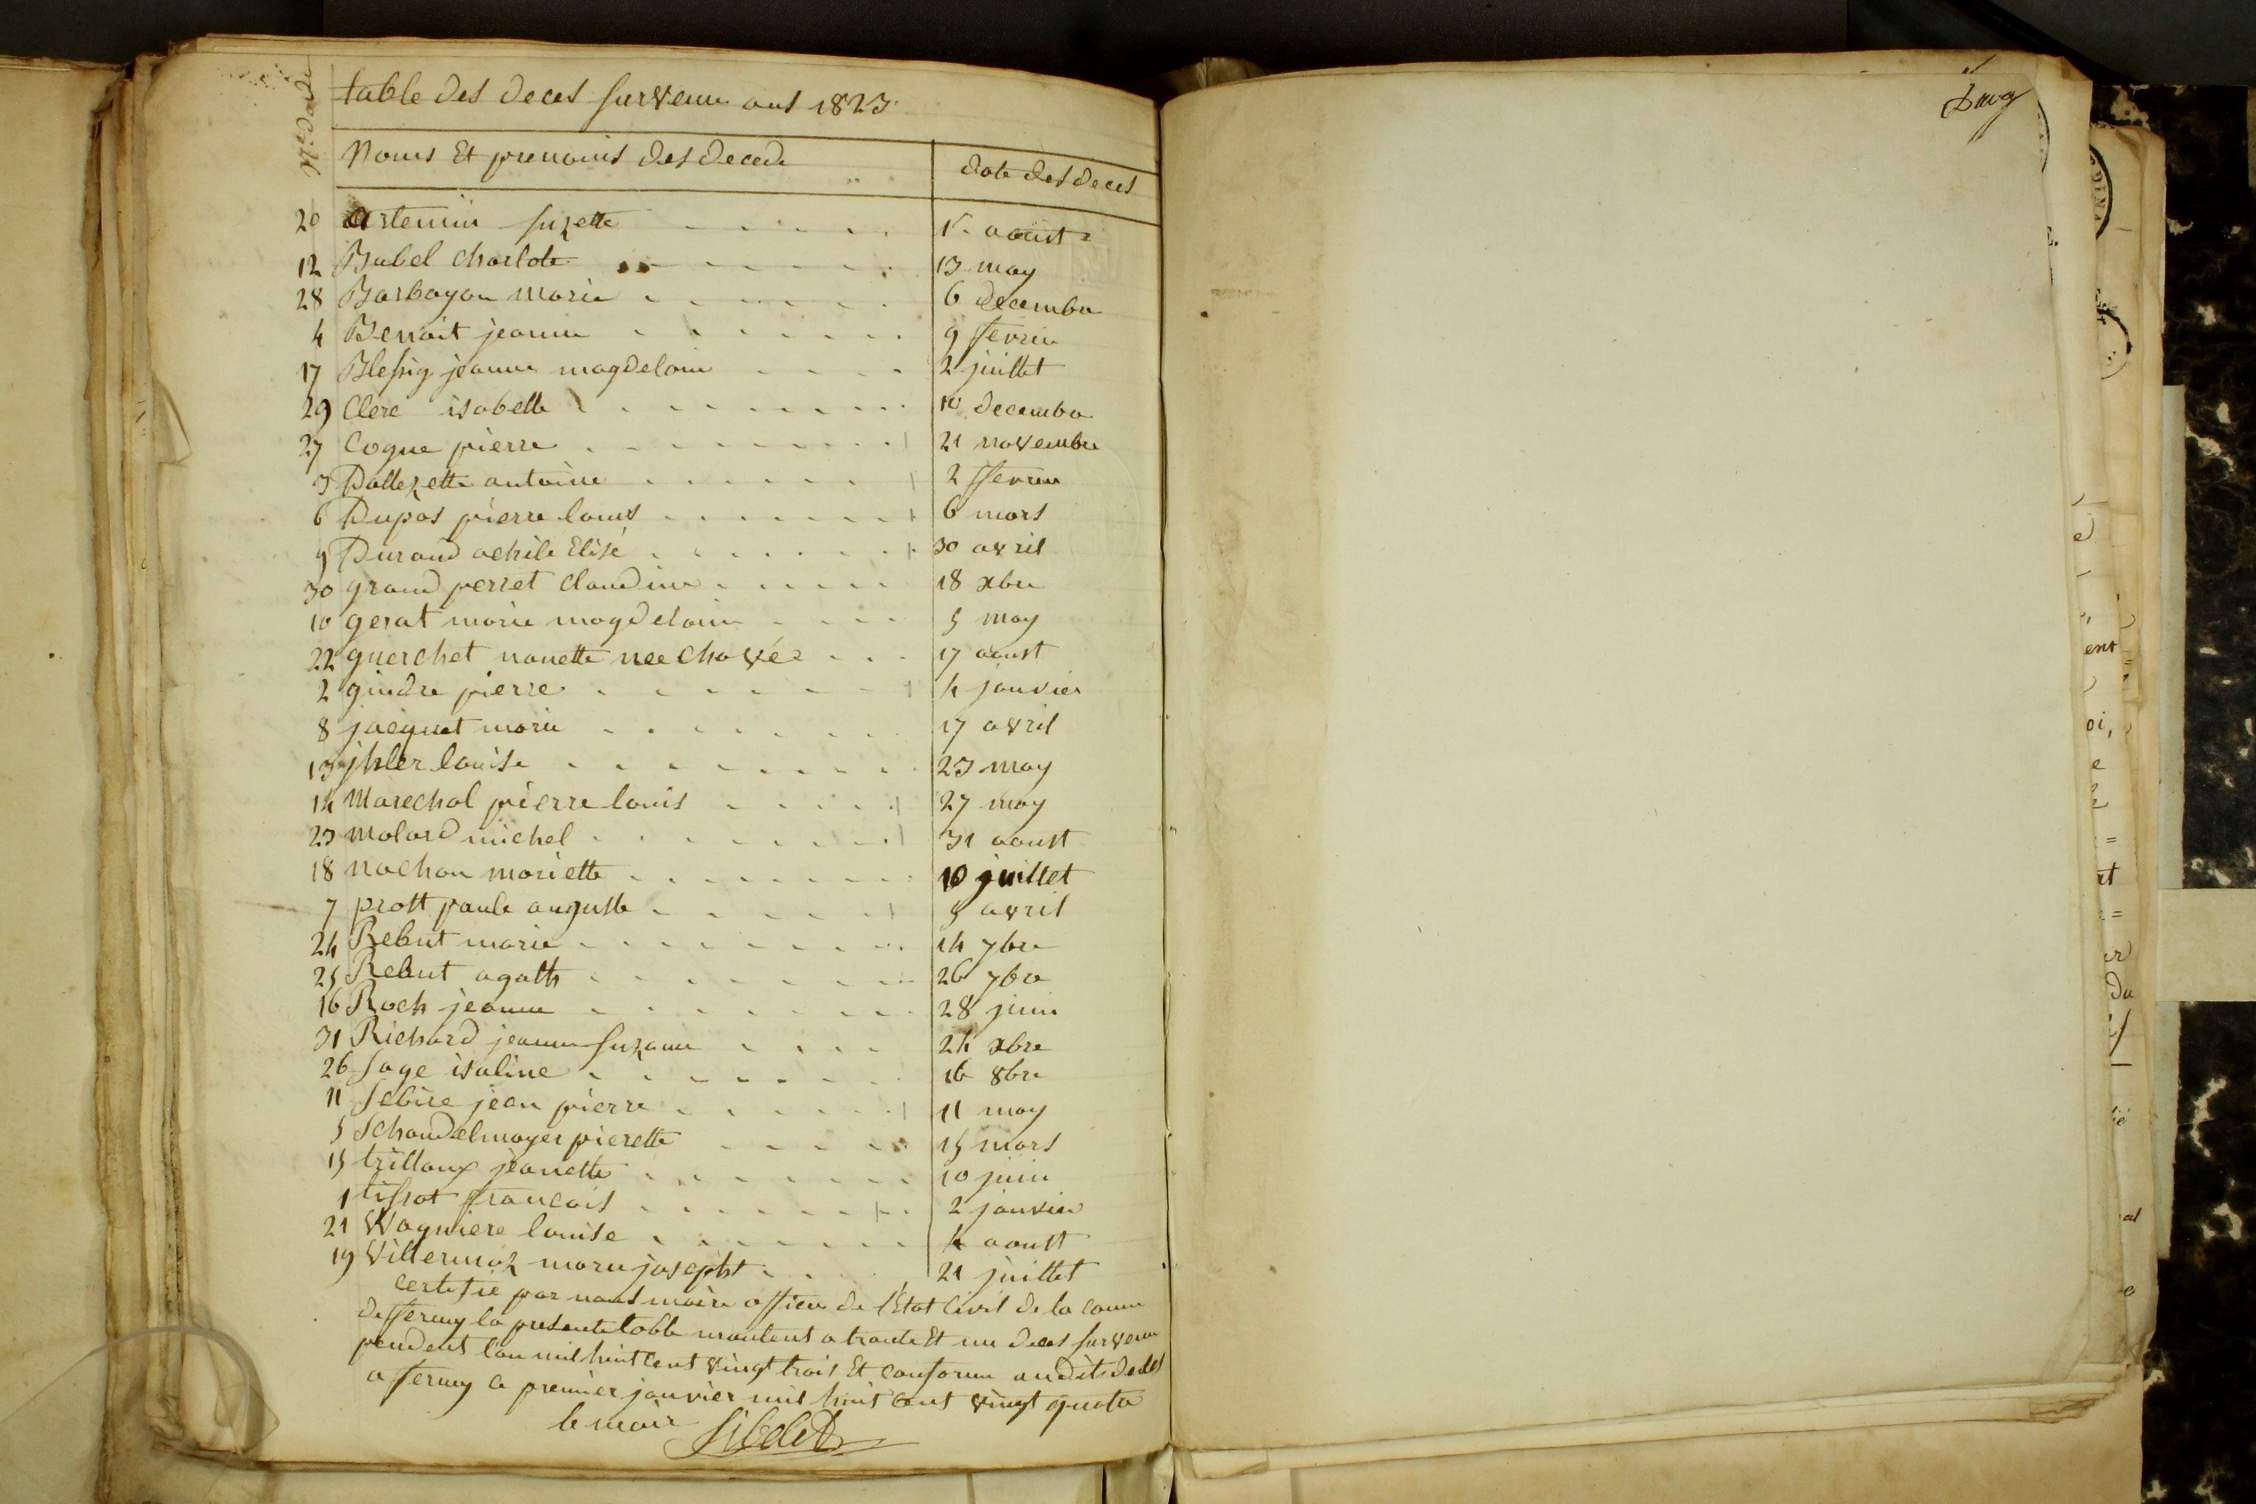 table des deces survenu ans 1823
No des actes
Noms Et prenoms des decede
date des deces
20 Artemin suzette 15 aoust
12 Babel charlote 13 may
28 Barbayon marie 6 decembre
4 Benoit jeanne 9 fevrier
17 Blessig jeanne magdelaine 2 juillet
29 Clerc isabelle 10 decembre
27 Cogne pierre 21 novembre
3 Dallezette antoine 2 ffevrier
6 Dupas pierre louis 6 mars
9 Durand achile Elisé 30 avril
30 grand perret claudine 18 xbre
10 gerat marie magdelaine 5 may
22 guerchet nanette nee chavé 17 aoust
2 gindre pierre 4 janvier
8 jacquet marie 17 avril
13 jhler louise 23 may
14 Marechal pierre louis 27 may
23 molard michel 31 aoust
18 nachon mariette 10 juillet
7 prott paule auguste 5 avril
24 Rebut marie 14 7bre
25 Rebut agath 26 7bre
16 Roch jeanne 28 juin
31 Richard jeanne suzanne 24 xbre
26 sage isaline 16 8bre
11 Sebire jean pierre 11 may
5 Schaudelmayer pierette 15 mars
15 trillaux jeanette 10 juin
1 tissot francois 2 janvier
21 Wagniere louise 4 aoust
19 Villermoz marie josepht 21 juillet
certifié par nous maire officier de l'Etat civil de la comm
de fferney la presente table montent a trante Et un deces survenu
pendent l'an mil huit cent vingt trois Et conforme au dits deces
a fferney ce premier janvier mil huit cent vingt quatre
le maire